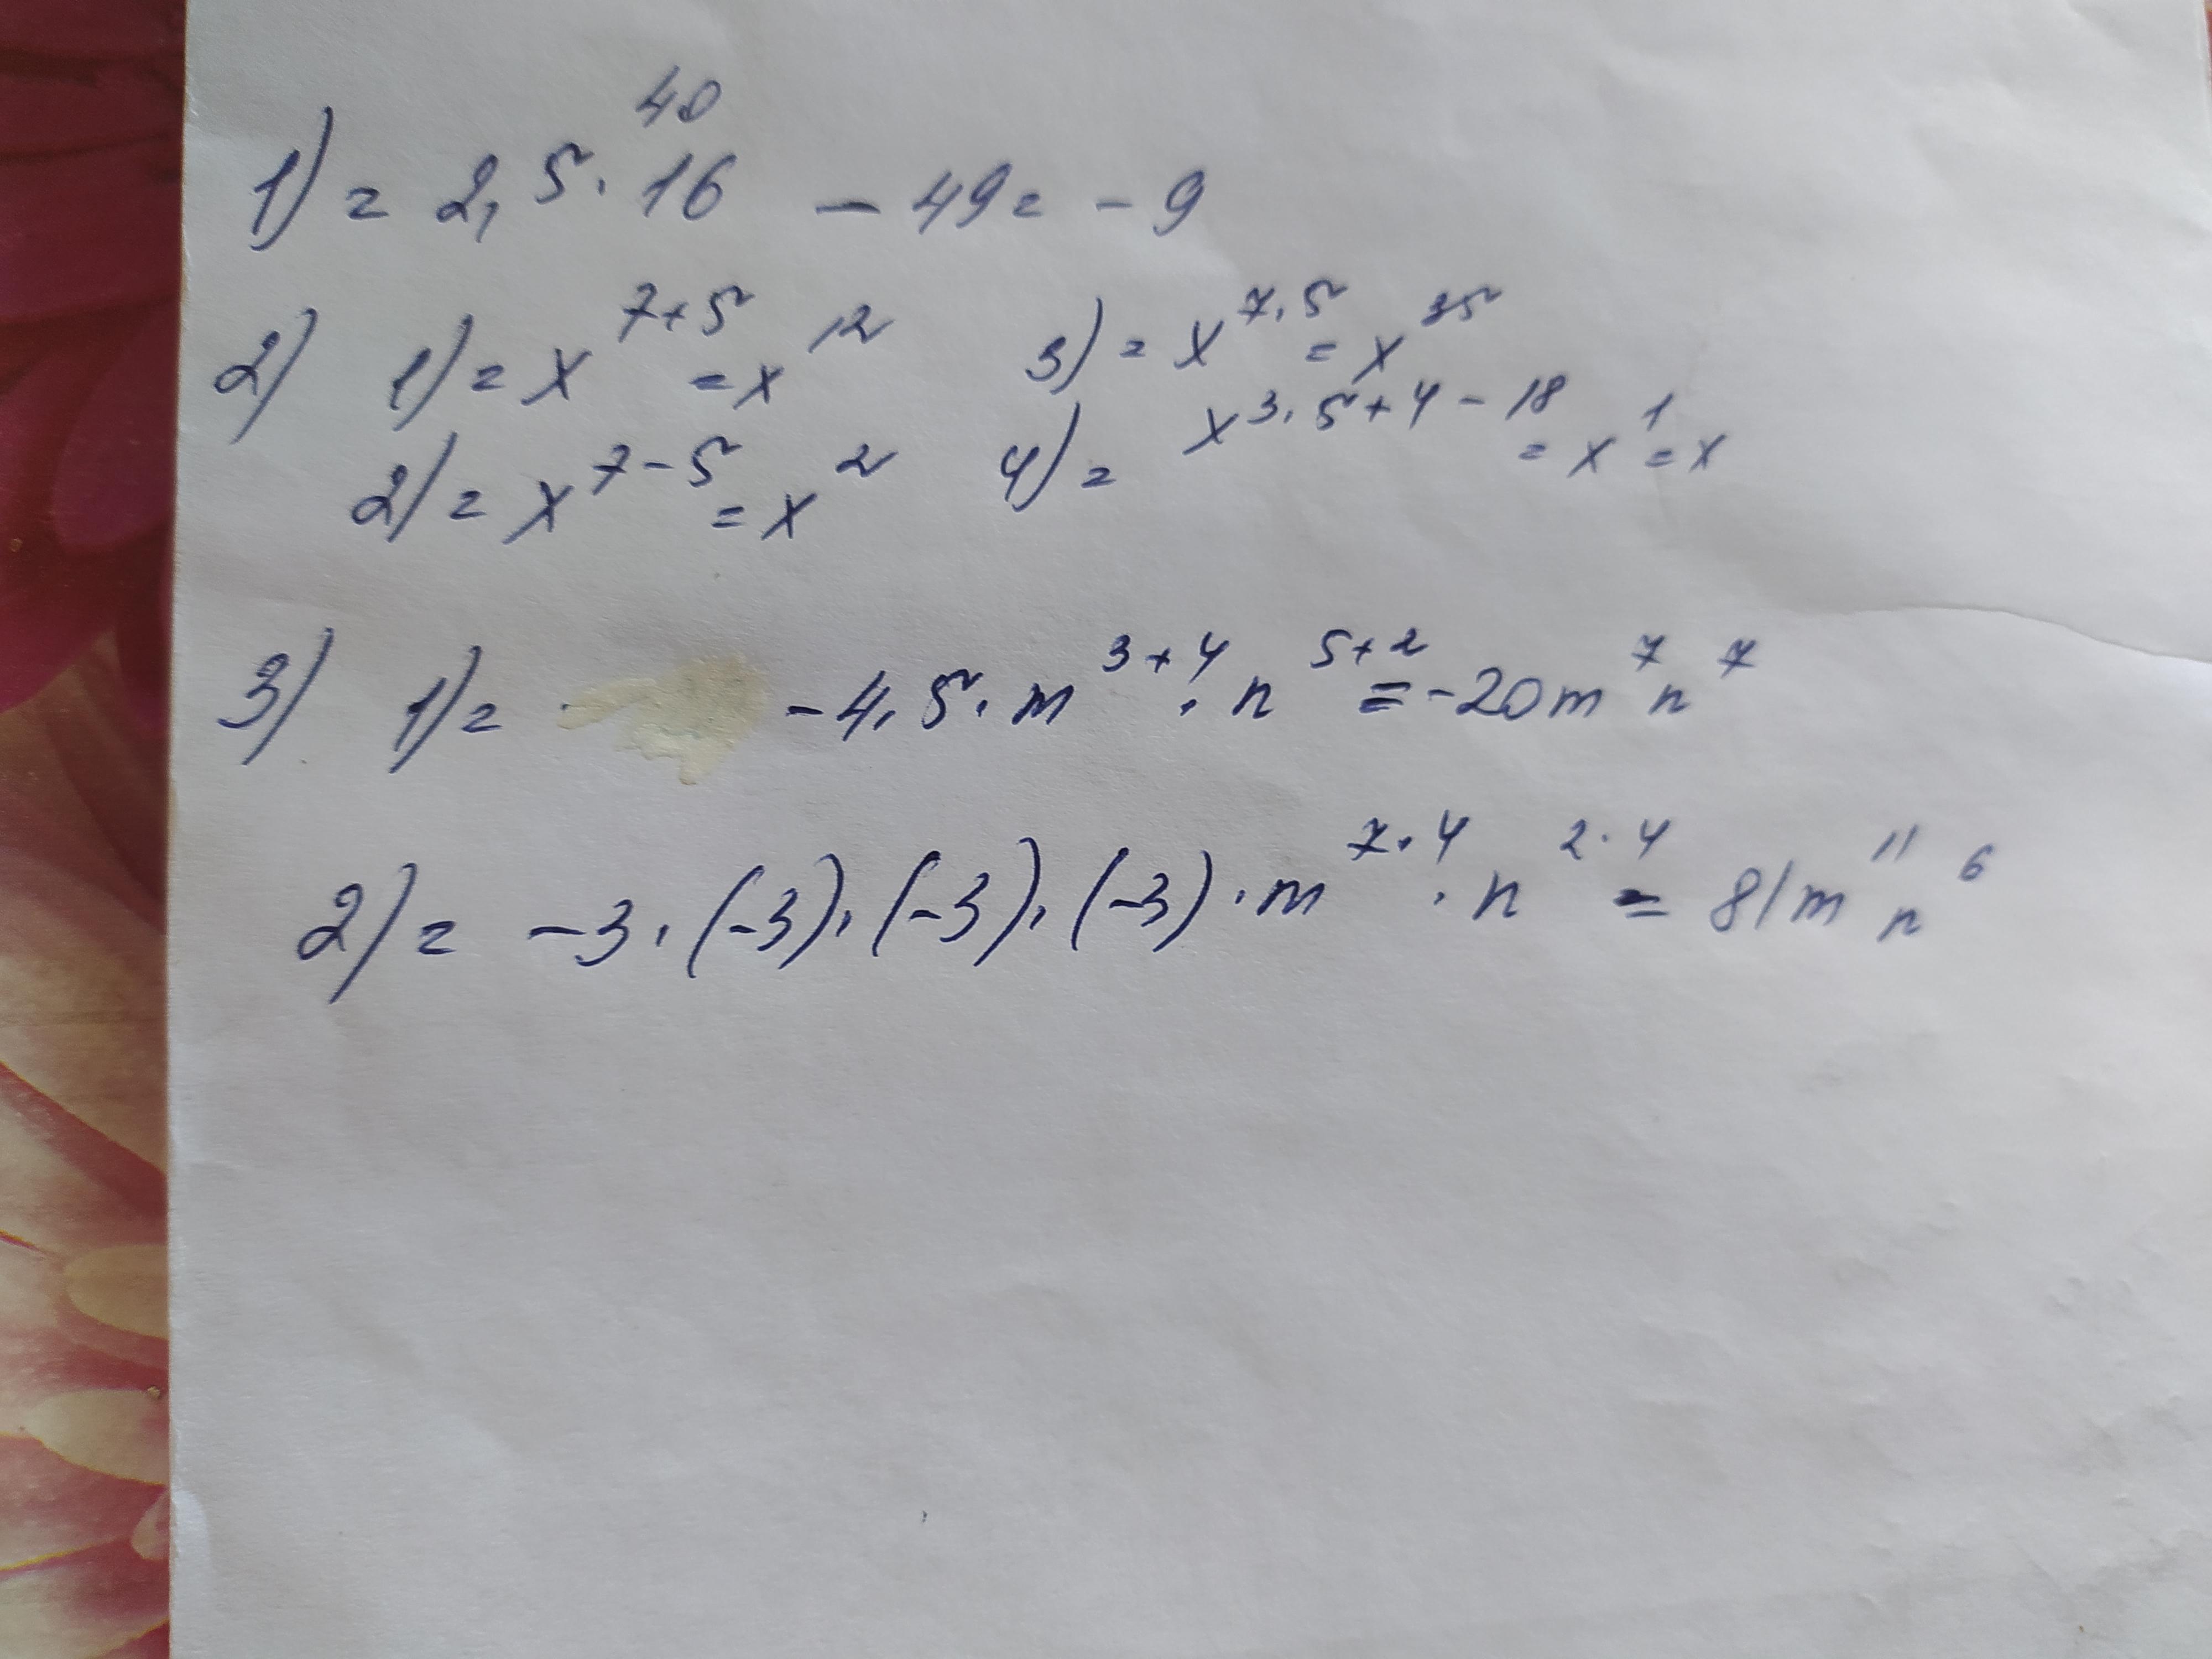 40
1) = 2,5 · 16 - 49 = -9
2) 1) = x^{7+5} = x^{12} 3) = x^{7·5} = x^{35}
2) = x^{7-5} = x^{2} 4) = x^{3·5+4-18} = x^{1} = x
3) 1) = -4·5·m^{3+4}·n^{5+2} = -20m^{7}n^{7}
2) = -3·(-3)·(-3)·(-3)·m^{7·4}·n^{2·4} = 81m^{11}n^{6}